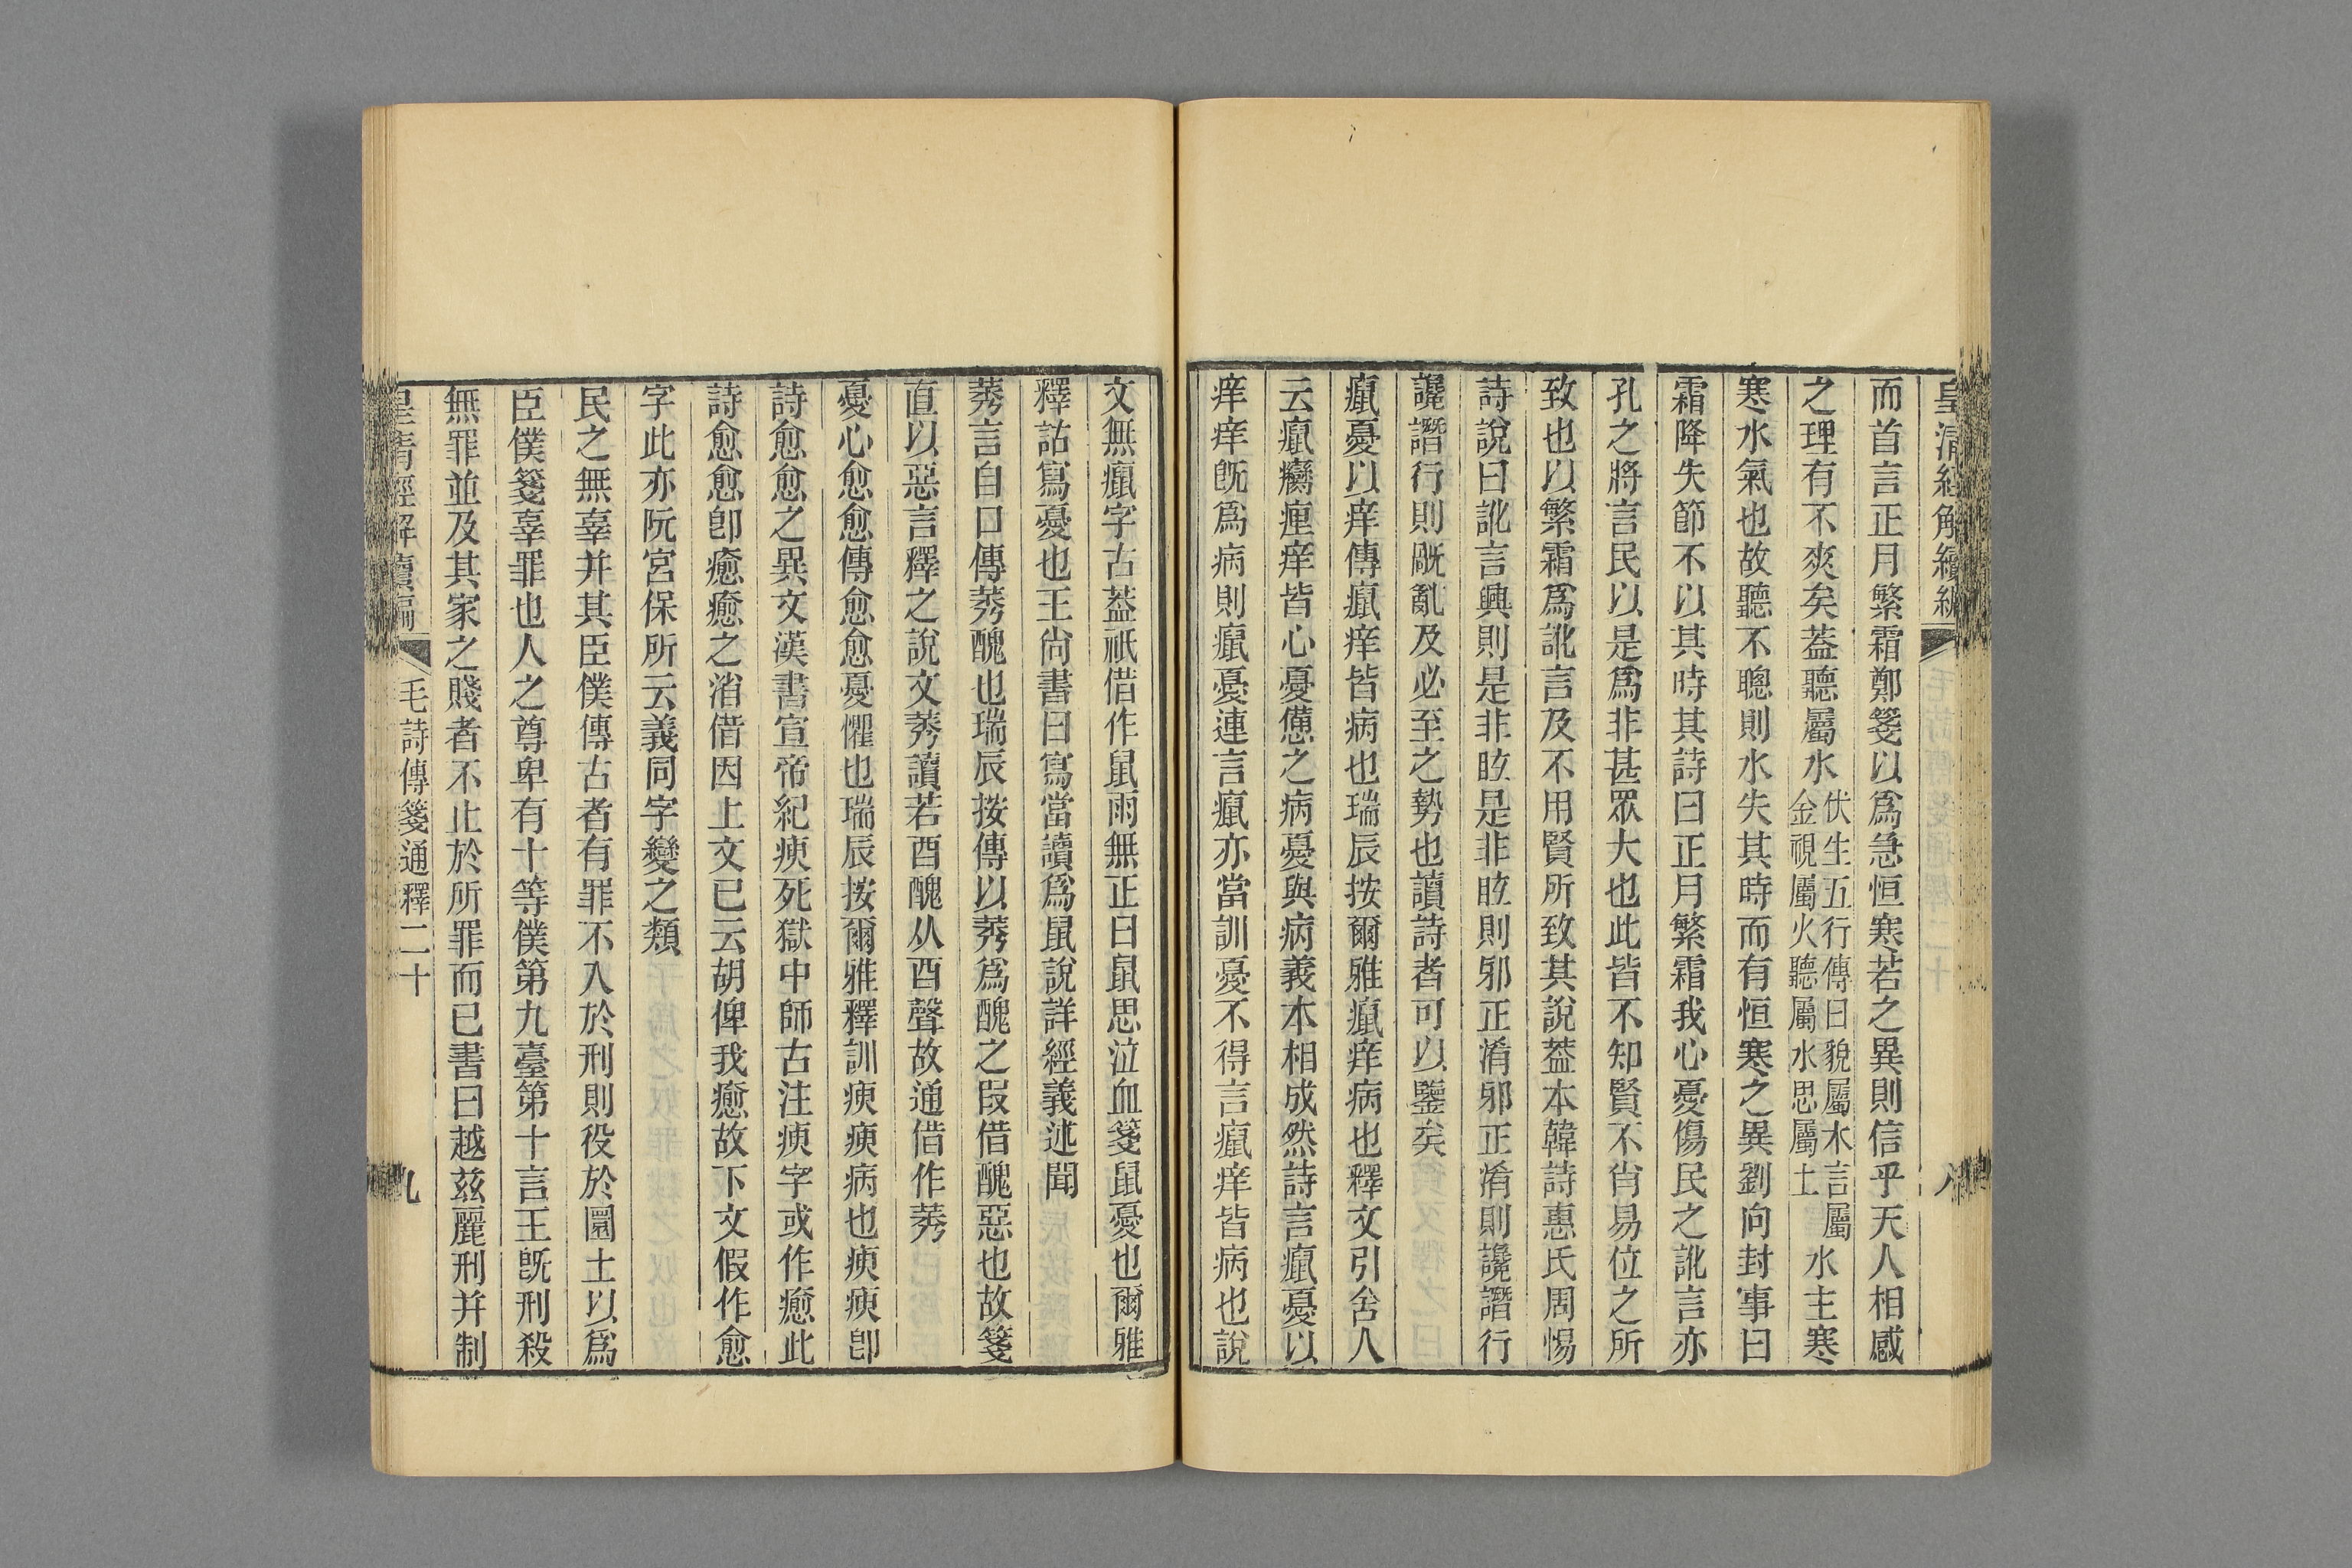 皇清經解續編
八
而首言正月繁霜鄭箋以爲急恒寒若之異則信乎天人相感
之理有不爽矣葢聽屬水伏生五行傳曰貌屬木言屬金視屬火聽屬水思屬土水主寒
寒水氣也故聽不聰則水失其時而有恒寒之異劉向封事曰
霜降失節不以其時其詩曰正月繁霜我心憂傷民之訛言亦
孔之將言民以是爲非甚眾大也此皆不知賢不肖易位之所
致也以繁霜爲訛言及不用賢所致其說葢本韓詩惠氏周惕
詩說曰訛言興則是非眩是非眩則邪正淆邪正淆則讒譖行
讒譖行則厩亂及必至之勢也讀詩者可以鑒矣
癙憂以痒傳癙痒皆病也瑞辰按爾雅癙痒病也釋文引舍人
云癙癵瘽痒皆心憂憊之病憂與病義本相成然詩言癙憂以
痒痒旣爲病則癙憂連言癙亦當訓憂不得言癙痒皆病也說
文無癙字古葢祇借作鼠雨無正曰鼠思泣血箋鼠憂也爾雅
釋詁寫憂也王尙書曰寫當讀爲鼠說詳經義述聞
莠言自口傳莠醜也瑞辰按傳以莠爲醜之叚借醜惡也故箋
直以惡言釋之說文莠讀若酉醜从酉聲故通借作莠
憂心愈愈傳愈愈憂懼也瑞辰按爾雅釋訓瘐瘐病也瘐瘐卽
詩愈愈之異文漢書宣帝紀瘐死獄中師古注瘐字或作瘉此
詩愈愈卽瘉瘉之渻借因上文已云胡俾我瘉故下文假作愈
字此亦阮宮保所云義同字變之類
民之無辜并其臣僕傳古者有罪不入於刑則役於圜土以爲
臣僕箋辜罪也人之尊卑有十等僕第九臺第十言王旣刑殺
無罪並及其家之賤者不止於所罪而已書曰越兹麗刑并制
皇清經解續編
毛詩傳箋通釋二十
九